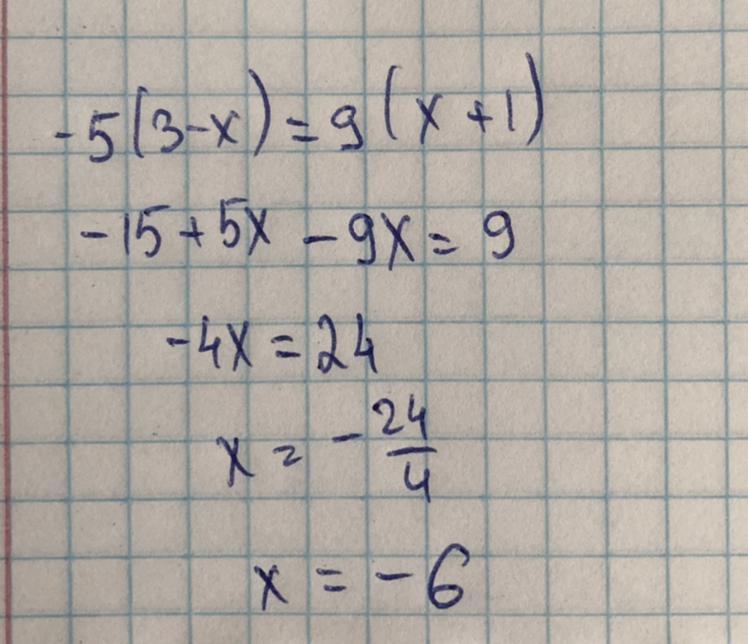 -5(3-x)=9(x+1)
-15+5x-9x=9
-4x=24
x=-24/4
x=-6